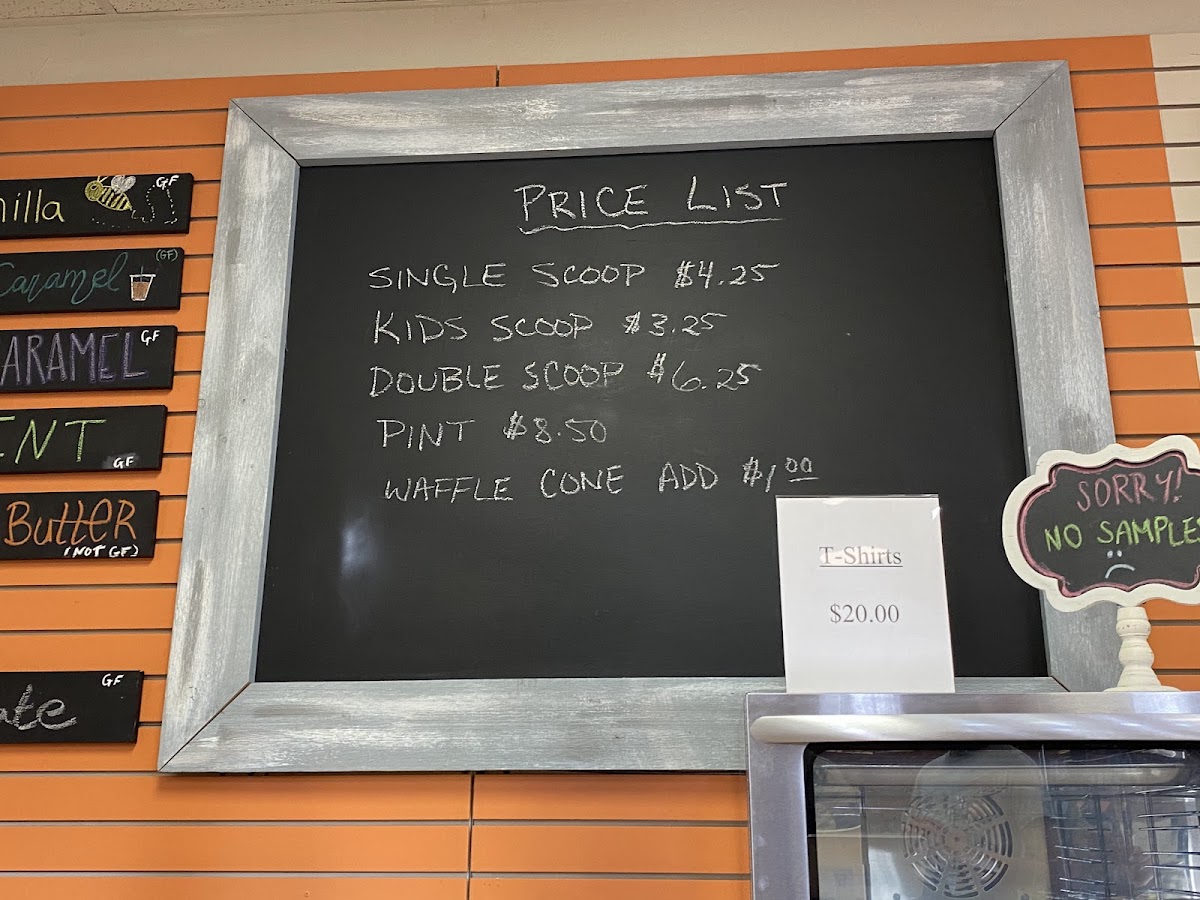 PRICE LIST
SINGLE SCOOP $4.25
KIDS SCOOP $3.25
DOUBLE SCOOP $6.25
PINT $8.50
WAFFLE CONE ADD $1.00
nilla GF
Caramel (GF)
ARAMEL GF
INT GF
Butter
(NOT GF)
ate GF
T-Shirts
$20.00
SORRY!
NO SAMPLES